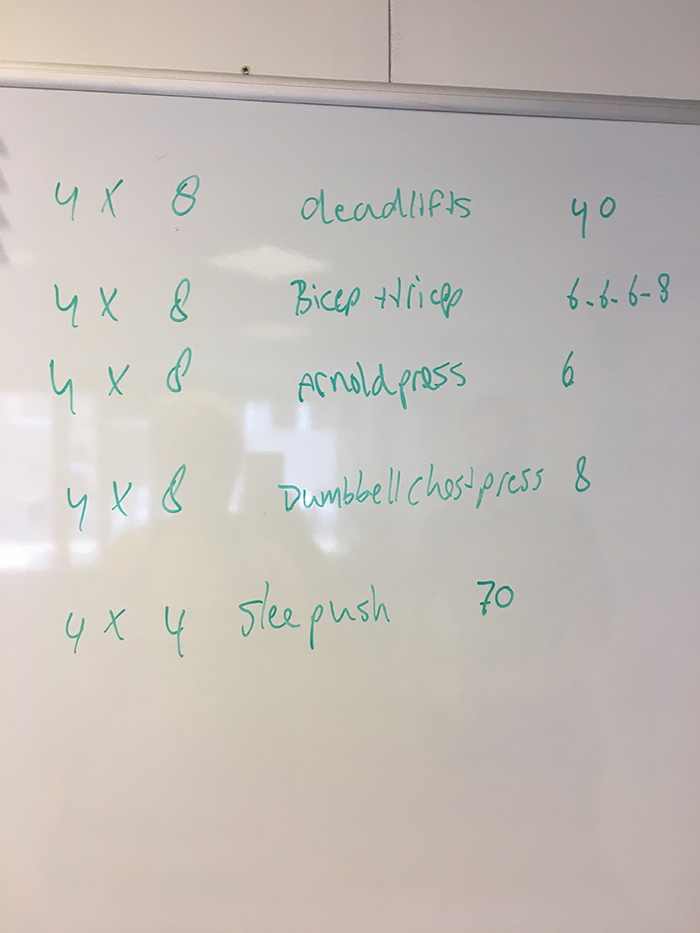 4 x 8 deadlifts 40
4 x 8 Bicep + tricep 6-6-6-8
4 x 8 Arnoldpress 6
4 x 8 Dumbbell chestpress 8
4 x 4 sleepush 70